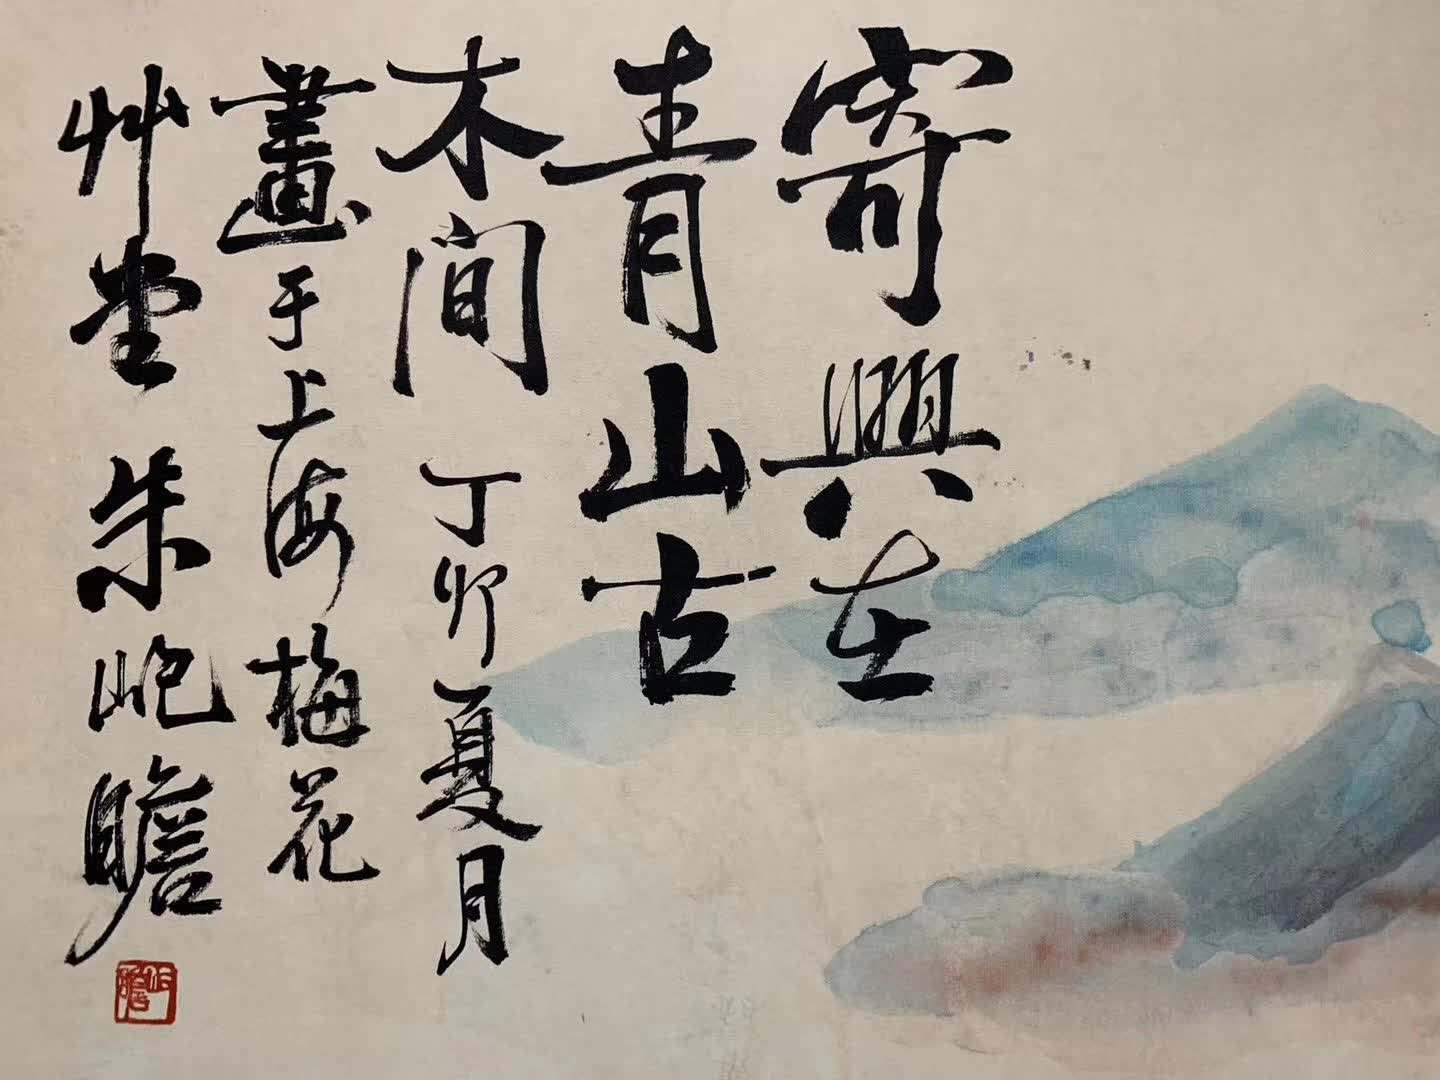 寄興在
青山古
木間丁卯夏月
畫于上海梅花
艸堂朱屺瞻
屺瞻